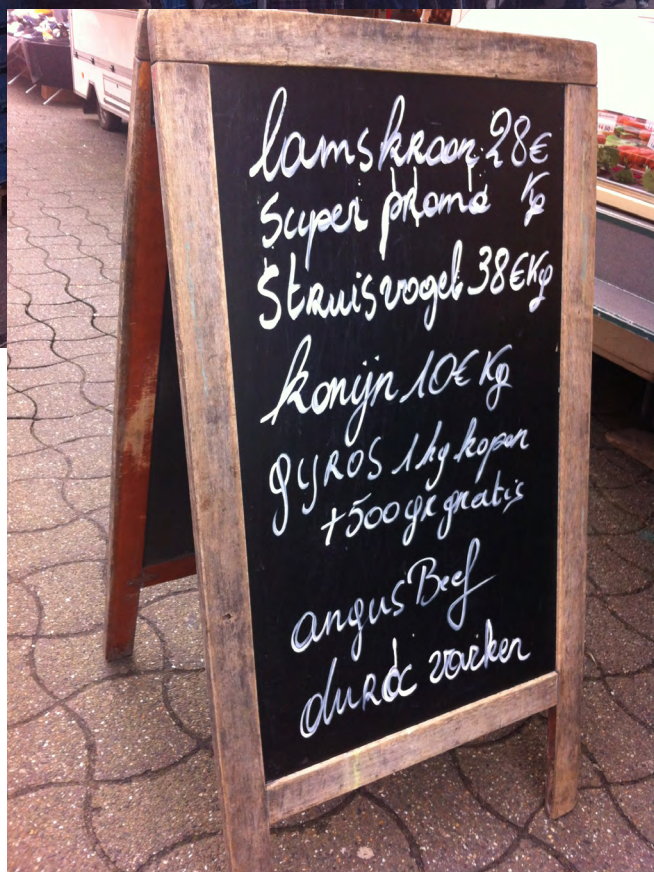 lamskroon 28€
super promo Kg
Struisvogel 38€Kg
konijn 10€ Kg
GYROS 1 kg kopen
+500 gr gratis
angus Beef
duroc varken